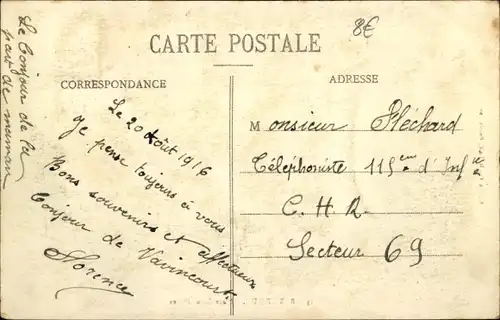 Le bonjour de la
part de maman
8€
CARTE POSTALE
CORRESPONDANCE
ADRESSE
Le 20 Août 1916
Je pense toujours à vous
Bons souvenirs et affectueux
bonjour de Vavincourt.
Florence
Monsieur Fléchard
Téléphoniste 115ème d'Infie
C. H. R.
Secteur 69